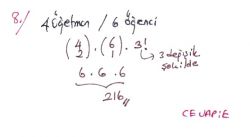 8./ 4 öğetmen / 6 öğenci
(4 2) . (6 1) . 3! → 3 değişik şekilde
6 . 6 . 6
216//
CEVAP E